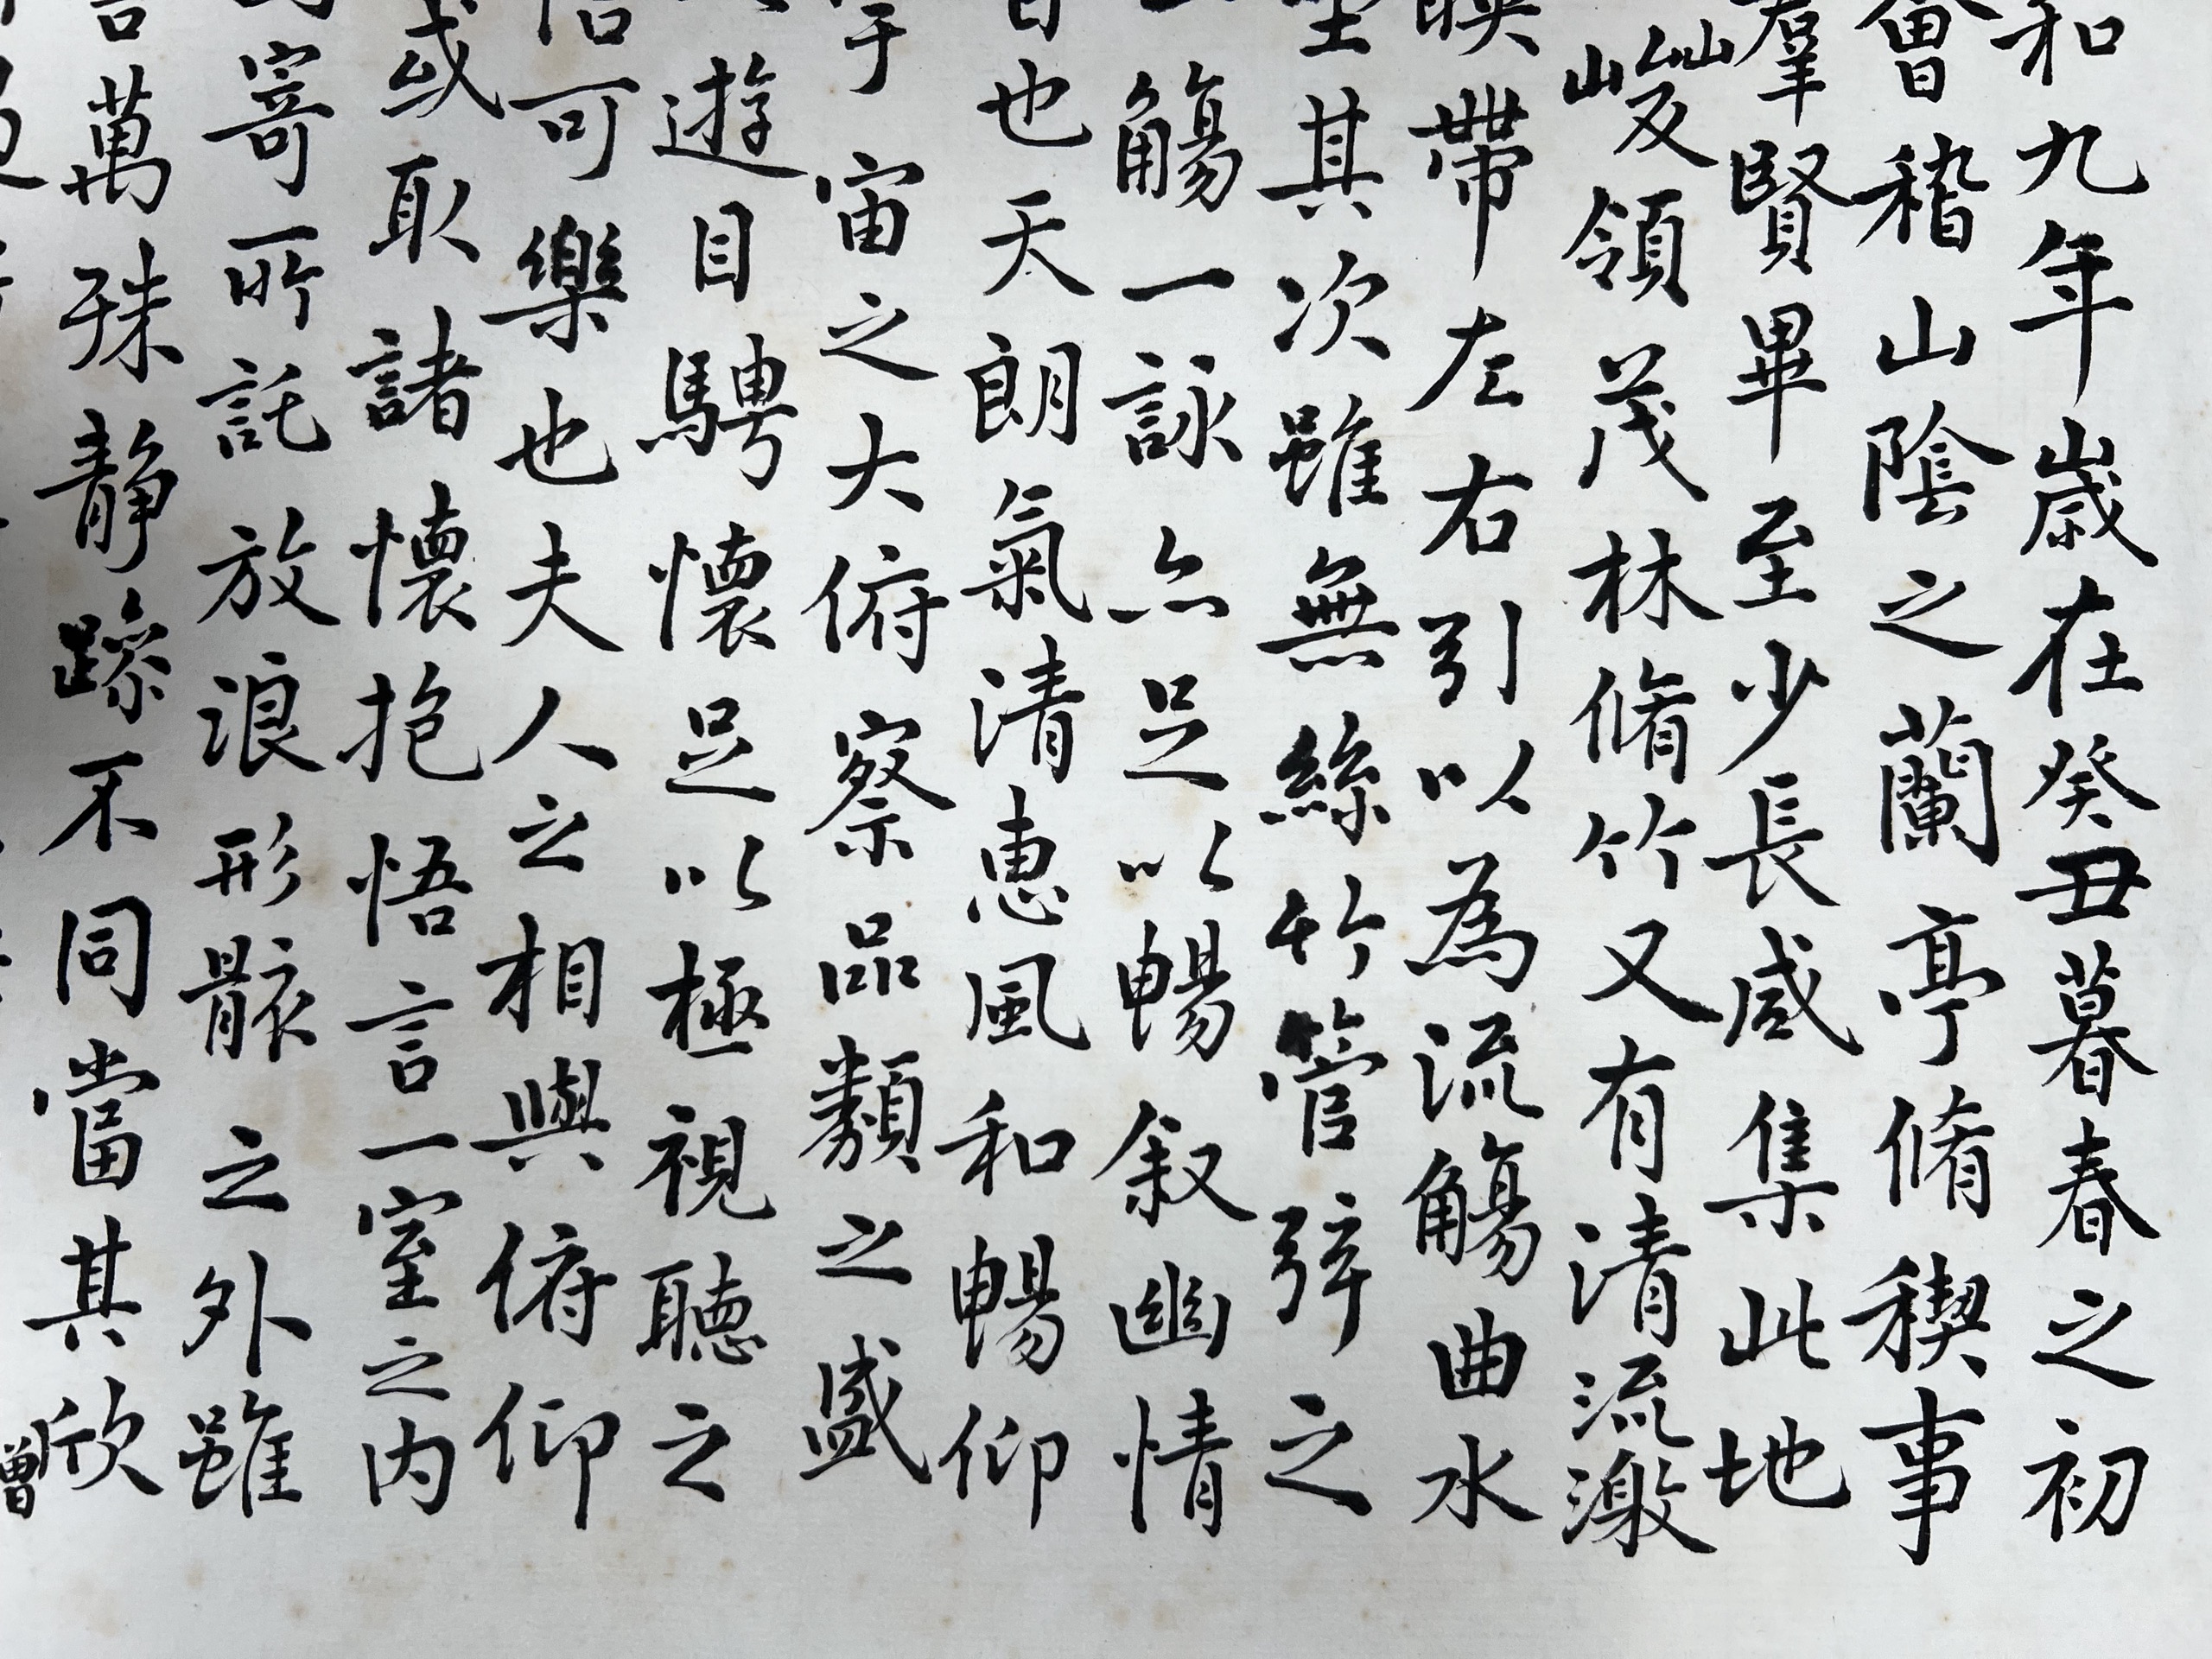 和九年歲在癸丑暮春之初
會稽山陰之蘭亭脩稧事
羣賢畢至少長咸集此地
山峻領茂林脩竹又有清流激
映帶左右引以為流觴曲水
坐其次雖無絲竹管弦之
觴一詠亦足以暢叙幽情
日也天朗氣清惠風和暢仰
宇宙之大俯察品類之盛
遊目騁懷足以極視聽之
信可樂也夫人之相與俯仰
或取諸懷抱悟言一室之內
寄所託放浪形骸之外雖
萬殊靜躁不同當其欣
曾